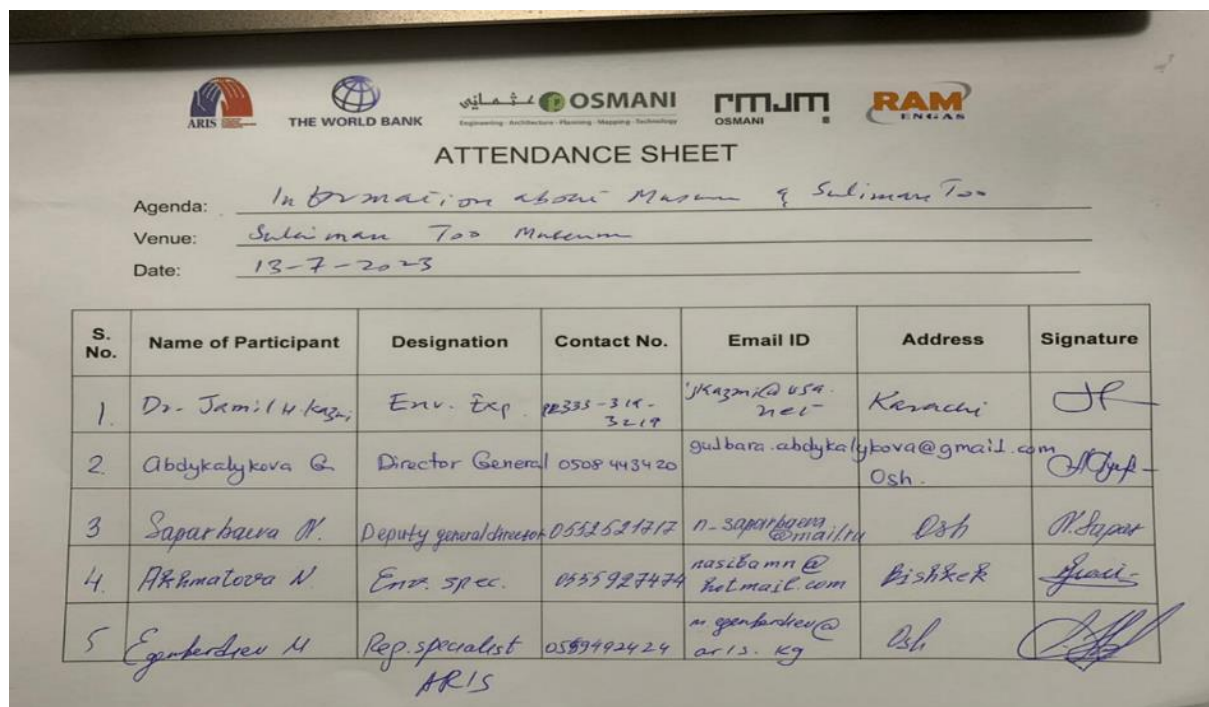 ARIS
THE WORLD BANK
عثماني OSMANI
Engineering - Architecture - Planning - Mapping - Technology
rmjm
OSMANI
RAM
ENGAS
ATTENDANCE SHEET
Agenda: Information about Museum & Suliman Too
Venue: Sulaiman Too Museum
Date: 13-7-2023
S. No. Name of Participant Designation Contact No. Email ID Address Signature
1. Dr. Jamil H Kazmi Env. Exp. jkazmi@usa.net Karachi
2 Abdykalykova G. Director General 0508 443420 gulbara.abdykalykova@gmail.com Osh.
3 Saparbaeva N. Deputy general director 0552521717 n-saparbaeva@mail.ru Osh N.Sapar
4. Akhmatova N Env. spec. 0555927474 nasibamn@hotmail.com Bishkek
5 Egemberdiev M Rep. specialist ARIS 0559492424 @aris.kg Osh